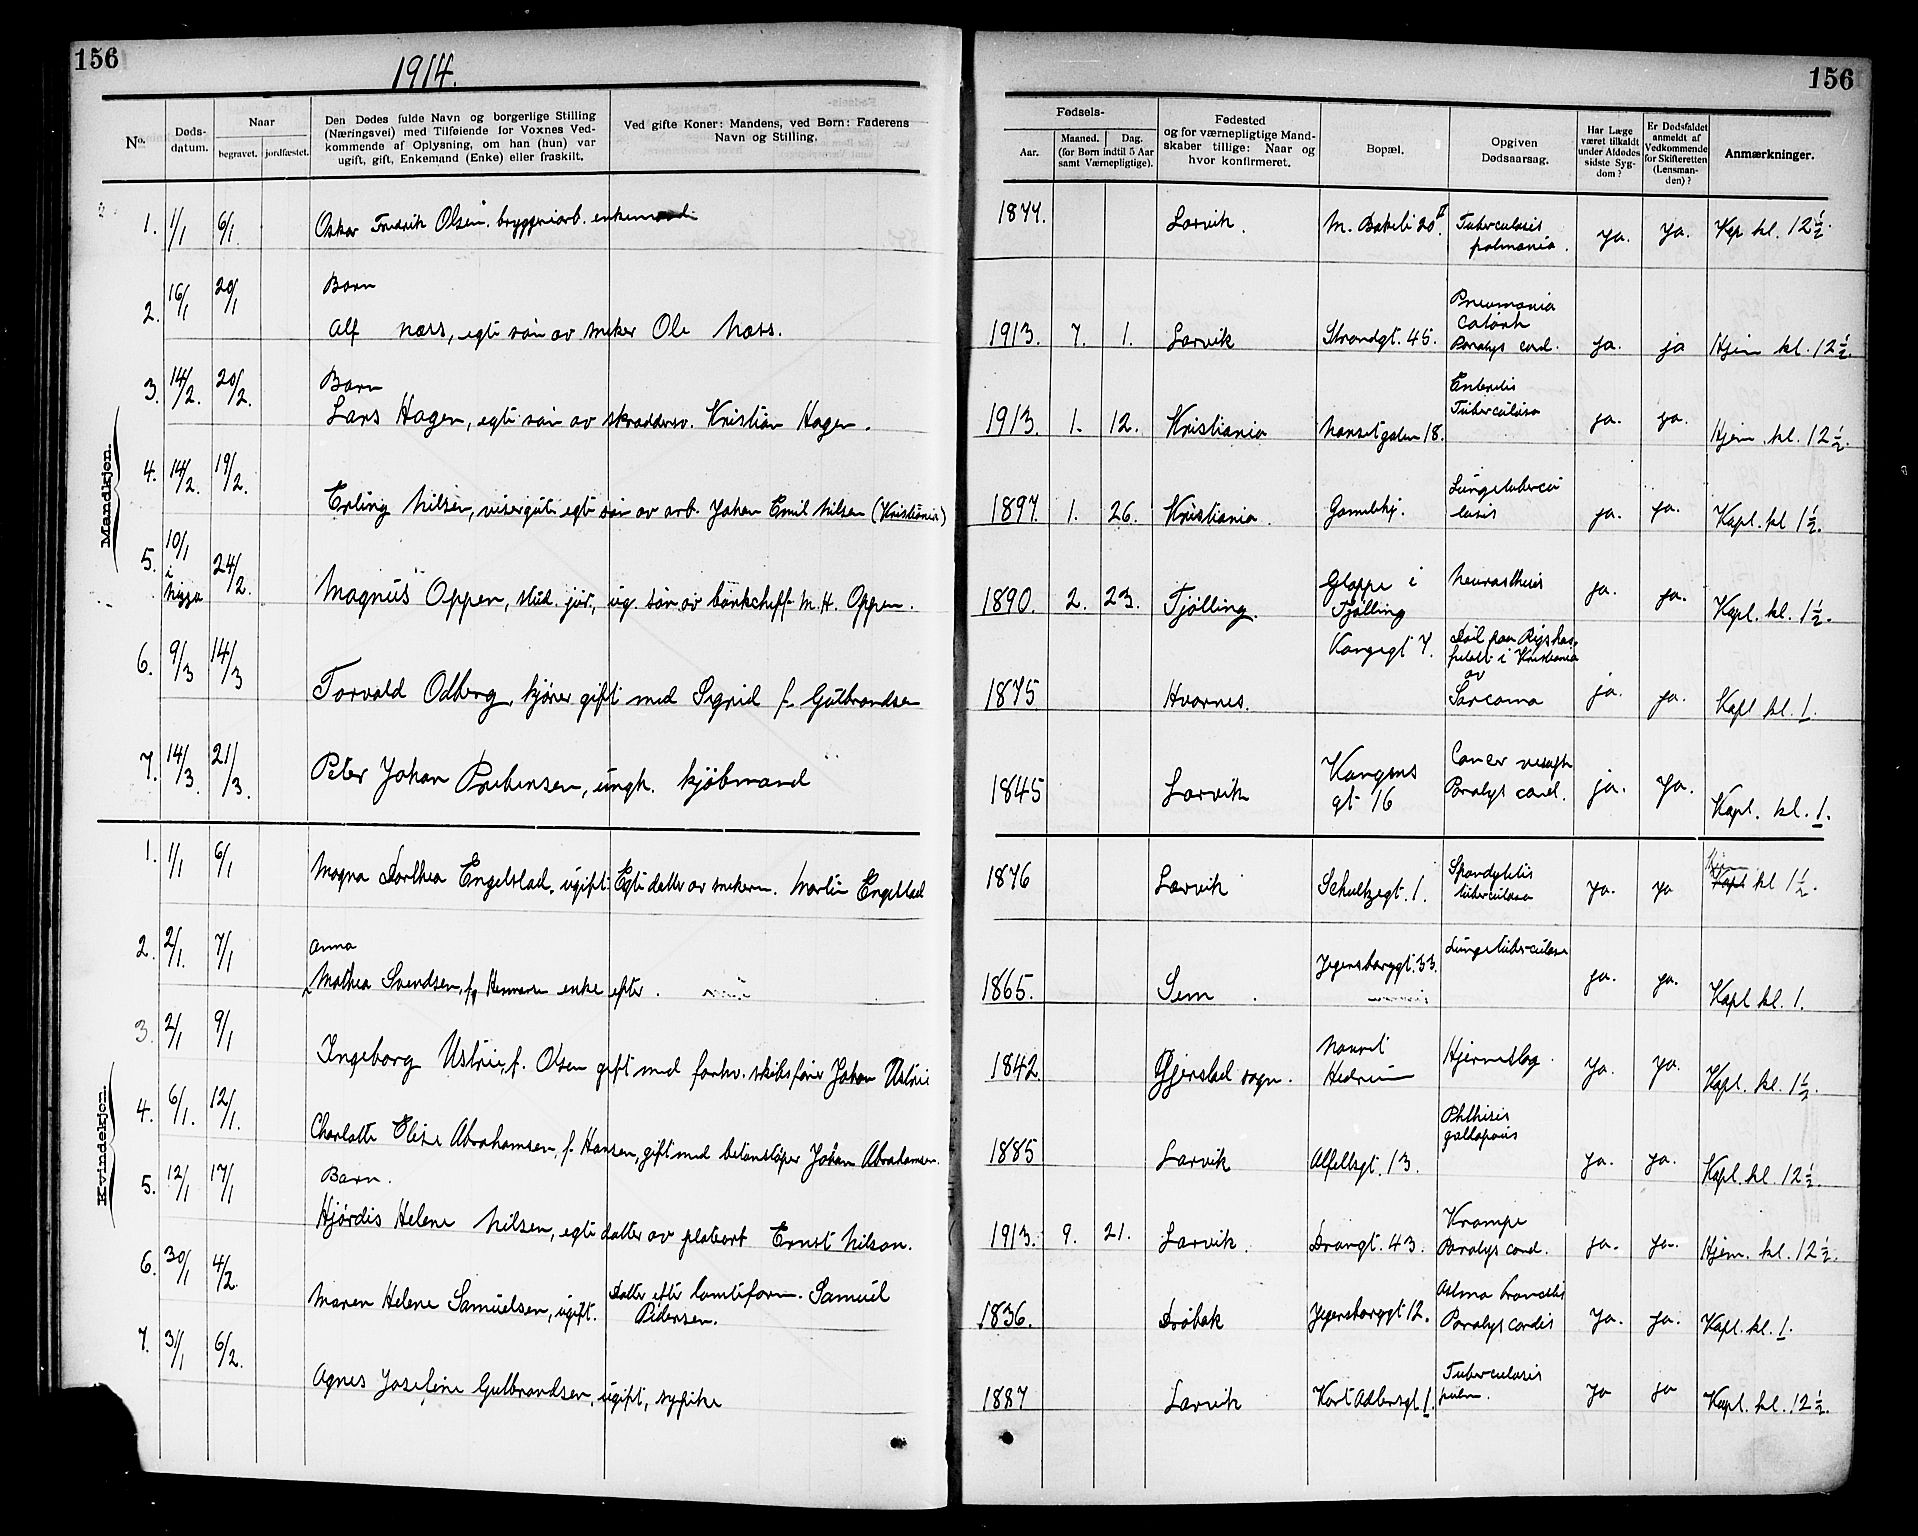 156
1914.
156
No.
Døds-
datum.
Naar
begravet. jordfæstet.
Den Dødes fulde Navn og borgerlige Stilling
(Næringsvei) med Tilføiende for Voxnes Ved-
kommende af Oplysning, om han (hun) var
ugift, gift, Enkemand (Enke) eller fraskilt.
Ved gifte Koner: Mandens, ved Børn: Faderens
Navn og Stilling.
Fødsels-
Aar.
Maaned. Dag.
(for Børn indtil 5 Aar
samt Værnepligtige).
Fødested
og for værnepligtige Mand-
skaber tillige: Naar og
hvor konfirmeret.
Bopæl.
Opgiven
Dødsaarsag.
Har Læge
været tilkaldt
under Afdødes
sidste Syg-
dom?
Er Dødsfaldet
anmeldt af
Vedkommende
for Skifteretten
(Lensman-
den)?
Anmærkninger.
Mandkjøn.
1. 1/1 6/1. Oskar Fredrik Olsen. bryggeriarb. enkemand 1877. Larvik. M. Bakeli 20 II. Tuberculosis ja. ja. Kap kl. 12 1/2.
2. 16/1 20/1 Barn
Alf Næss, egte søn av snekker Ole Næss. 1913. 7. 1. Larvik Strandgt. 45. Pneumonia
Catarrh
Paralys cord. ja. ja Hjem kl. 12 1/2.
3. 14/2. 20/2. Barn
Lars Hagen, egte søn av skræddersv. Kristian Hagen. 1913. 1. 12. Kristiania Nansetgaten 18. Enteritis
Tuberculosa ja. ja. Hjem. kl. 12 1/2.
4. 14/2. 19/2. Erling Nilsen, visergut egte søn av arb. Johan Emil Nilsen (Kristiania) 1897. 1. 26. Kristiania. Gamlekj. Lungetubercu
losis ja. ja. Kapl. kl 1 1/2.
5. 10/1
i
Nizza 24/2. Magnus Oppen, stud. jur., ug. søn av bankchef M. H. Oppen. 1890. 2. 23. Tjølling. Gloppe i
Tjølling ja. ja. Kapl. kl. 1 1/2.
6. 9/3 14/3 Torvald Odberg, kjører gift med Sigrid f. Gulbrandsen 1875. Hvarnes. Kongegt 7. Død paa Rigshos-
pitalet i Kristiania
av
Sarcoma ja. ja. Kapl kl. 1.
7. 14/3. 21/3. Peter Johan Prebensen, ungk. kjøbmand 1845 Larvik Kongens
gt 16 Paralys cord. ja. ja. Kapl. kl. 1.
Kvindekjøn.
1. 1/1 6/1 Magna Dorthea Engelstad, ugift. Egte datter av snekkerm. Martin Engelstad 1876 Larvik Schultzegt. 1. Spondylitis
tuberculosa ja. ja Hjem kl 1 1/2.
2. 2/1. 7/1 Anna
Mathea Svendsen, enke efter. 1865. Sem. Jegersborggt. 33. Lungetuberculose ja. ja. Kapl kl. 1.
3. 2/1 9/1 Ingeborg Ustrie, f. Olsen gift med forhv. skibsfører Johan Ustrie 1842. Gjerstad sogn. Nanset
Hedrum Hjerneslag. ja. ja. Kapl. kl. 1 1/2.
4. 6/1. 12/1. Charlotte Elise Abrahamsen, f. Hansen, gift med betonstøper Johan Abrahamsen. 1885 Larvik Alfeltsgt. 13. Phthisis
ja. ja. Kapl. kl 12 1/2.
5. 12/1 17/1 Barn.
Hjørdis Helene Nilsen, egte datter av platearb Ernst Nilson. 1913. 9. 21. Larvik. Trangt. 43. Krampe
Paralys cord. ja. ja. Hjem. kl. 12 1/2.
6. 30/1 4/2. Maren Helene Samuelsen, ugift. Datter efter Samuel
Pedersen. 1836. Drøbak Jegersborggt 12. Paralys cordis ja. ja. Kapl. kl. 1.
7. 31/1 6/2. Agnes Josefine Gulbrandsen, ugift, sypike 1887 Larvik Kort Adlersgt 1. Tuberculosis
pulm. ja ja Kapl. kl. 12 1/2.